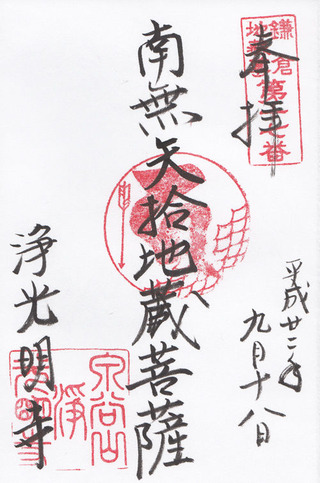 奉拝
鎌倉
地蔵
第十七番
平成廿二年
九月十八日
南無矢拾地蔵菩薩
浄光明寺
泉谷山
浄